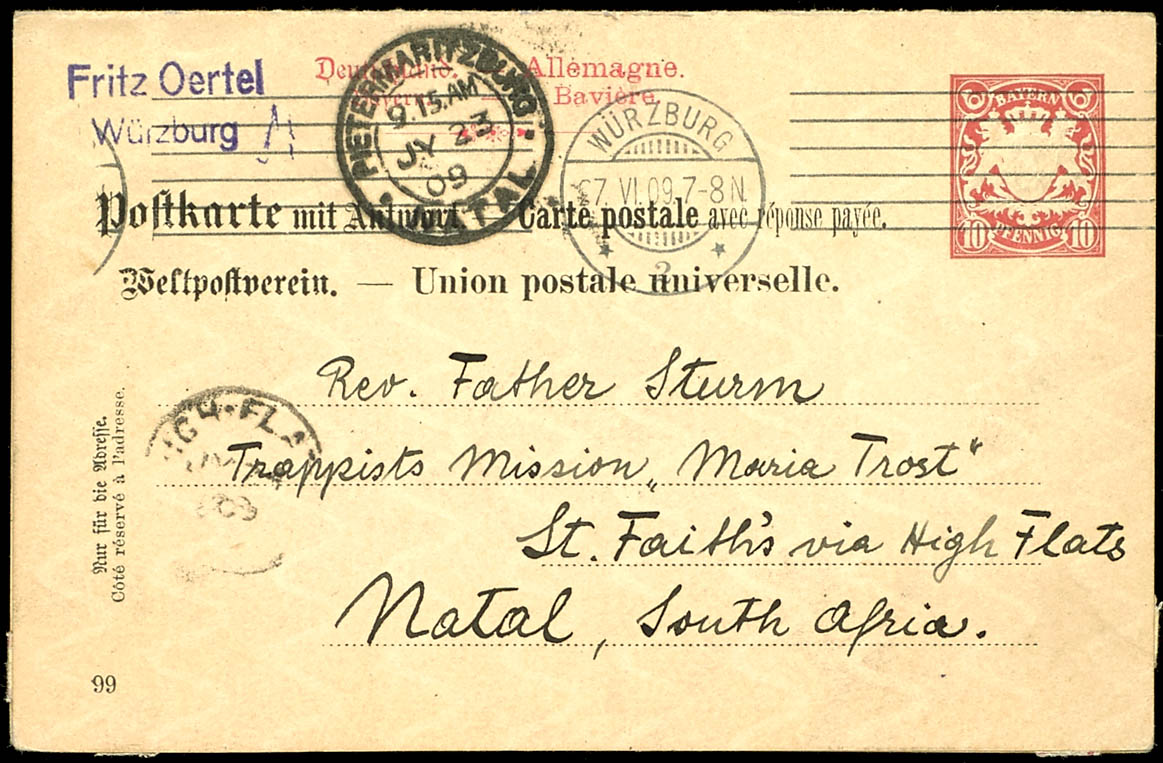 Fritz Oertel
Würzburg
Deutschland. Allemagne.
Bavière.
PIETERMARITZBURG
9.15.AM
JY 23
09
NATAL
WÜRZBURG
VI.09.7-8N.
2
BAYERN
10 PFENNIG 10
Postkarte mit Antwort. — Carte postale avec réponse payée.
Weltpostverein. — Union postale universelle.
Rev. Father Sturm
Trappists Mission „Maria Trost“
St. Faith's via High Flats
Natal, South Africa.
Nur für die Adresse.
Côté réservé à l'adresse.
99